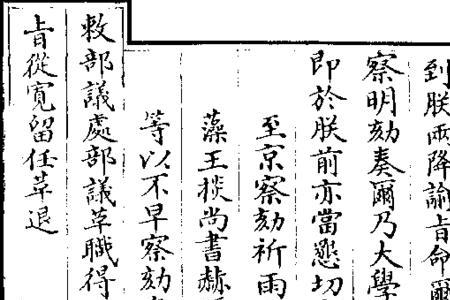 到朕兩降諭㫖命爾
察明劾奏爾乃大學
即於朕前亦當懇切
至京察劾祈雨
藻王掞尚書赫
等以不早察劾
敕部議處部議革職得
㫖從寛留任革退